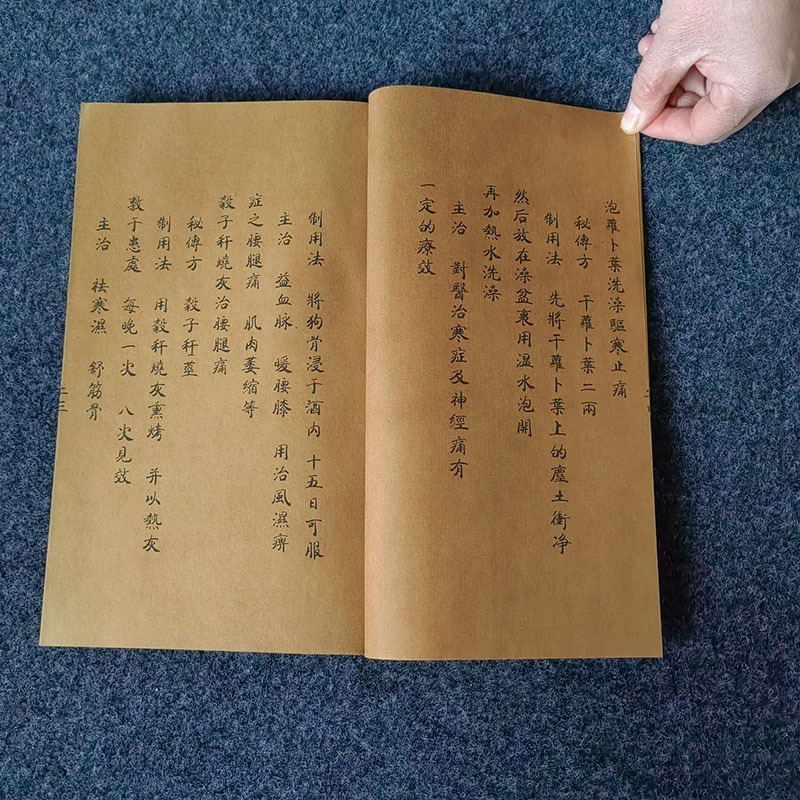 泡蘿卜葉洗澡驅寒止痛
秘傳方 干蘿卜葉二兩
制用法 先將干蘿卜葉上的塵土衝净
然后放在澡盆裏用温水泡開
再加熱水洗澡
主治 對醫治寒症及神經痛有
一定的療效
制用法 將狗骨浸于酒内 十五日可服
主治 益血脉 暖腰膝 用治風濕痹
症之腰腿痛 肌肉萎縮等
穀子秆燒灰治腰腿痛
秘傳方 穀子秆莖
制用法 用穀秆燒灰熏烤 并以熱灰
敷于患處 每晚一次 八次見效
主治 祛寒濕 舒筋骨
二三